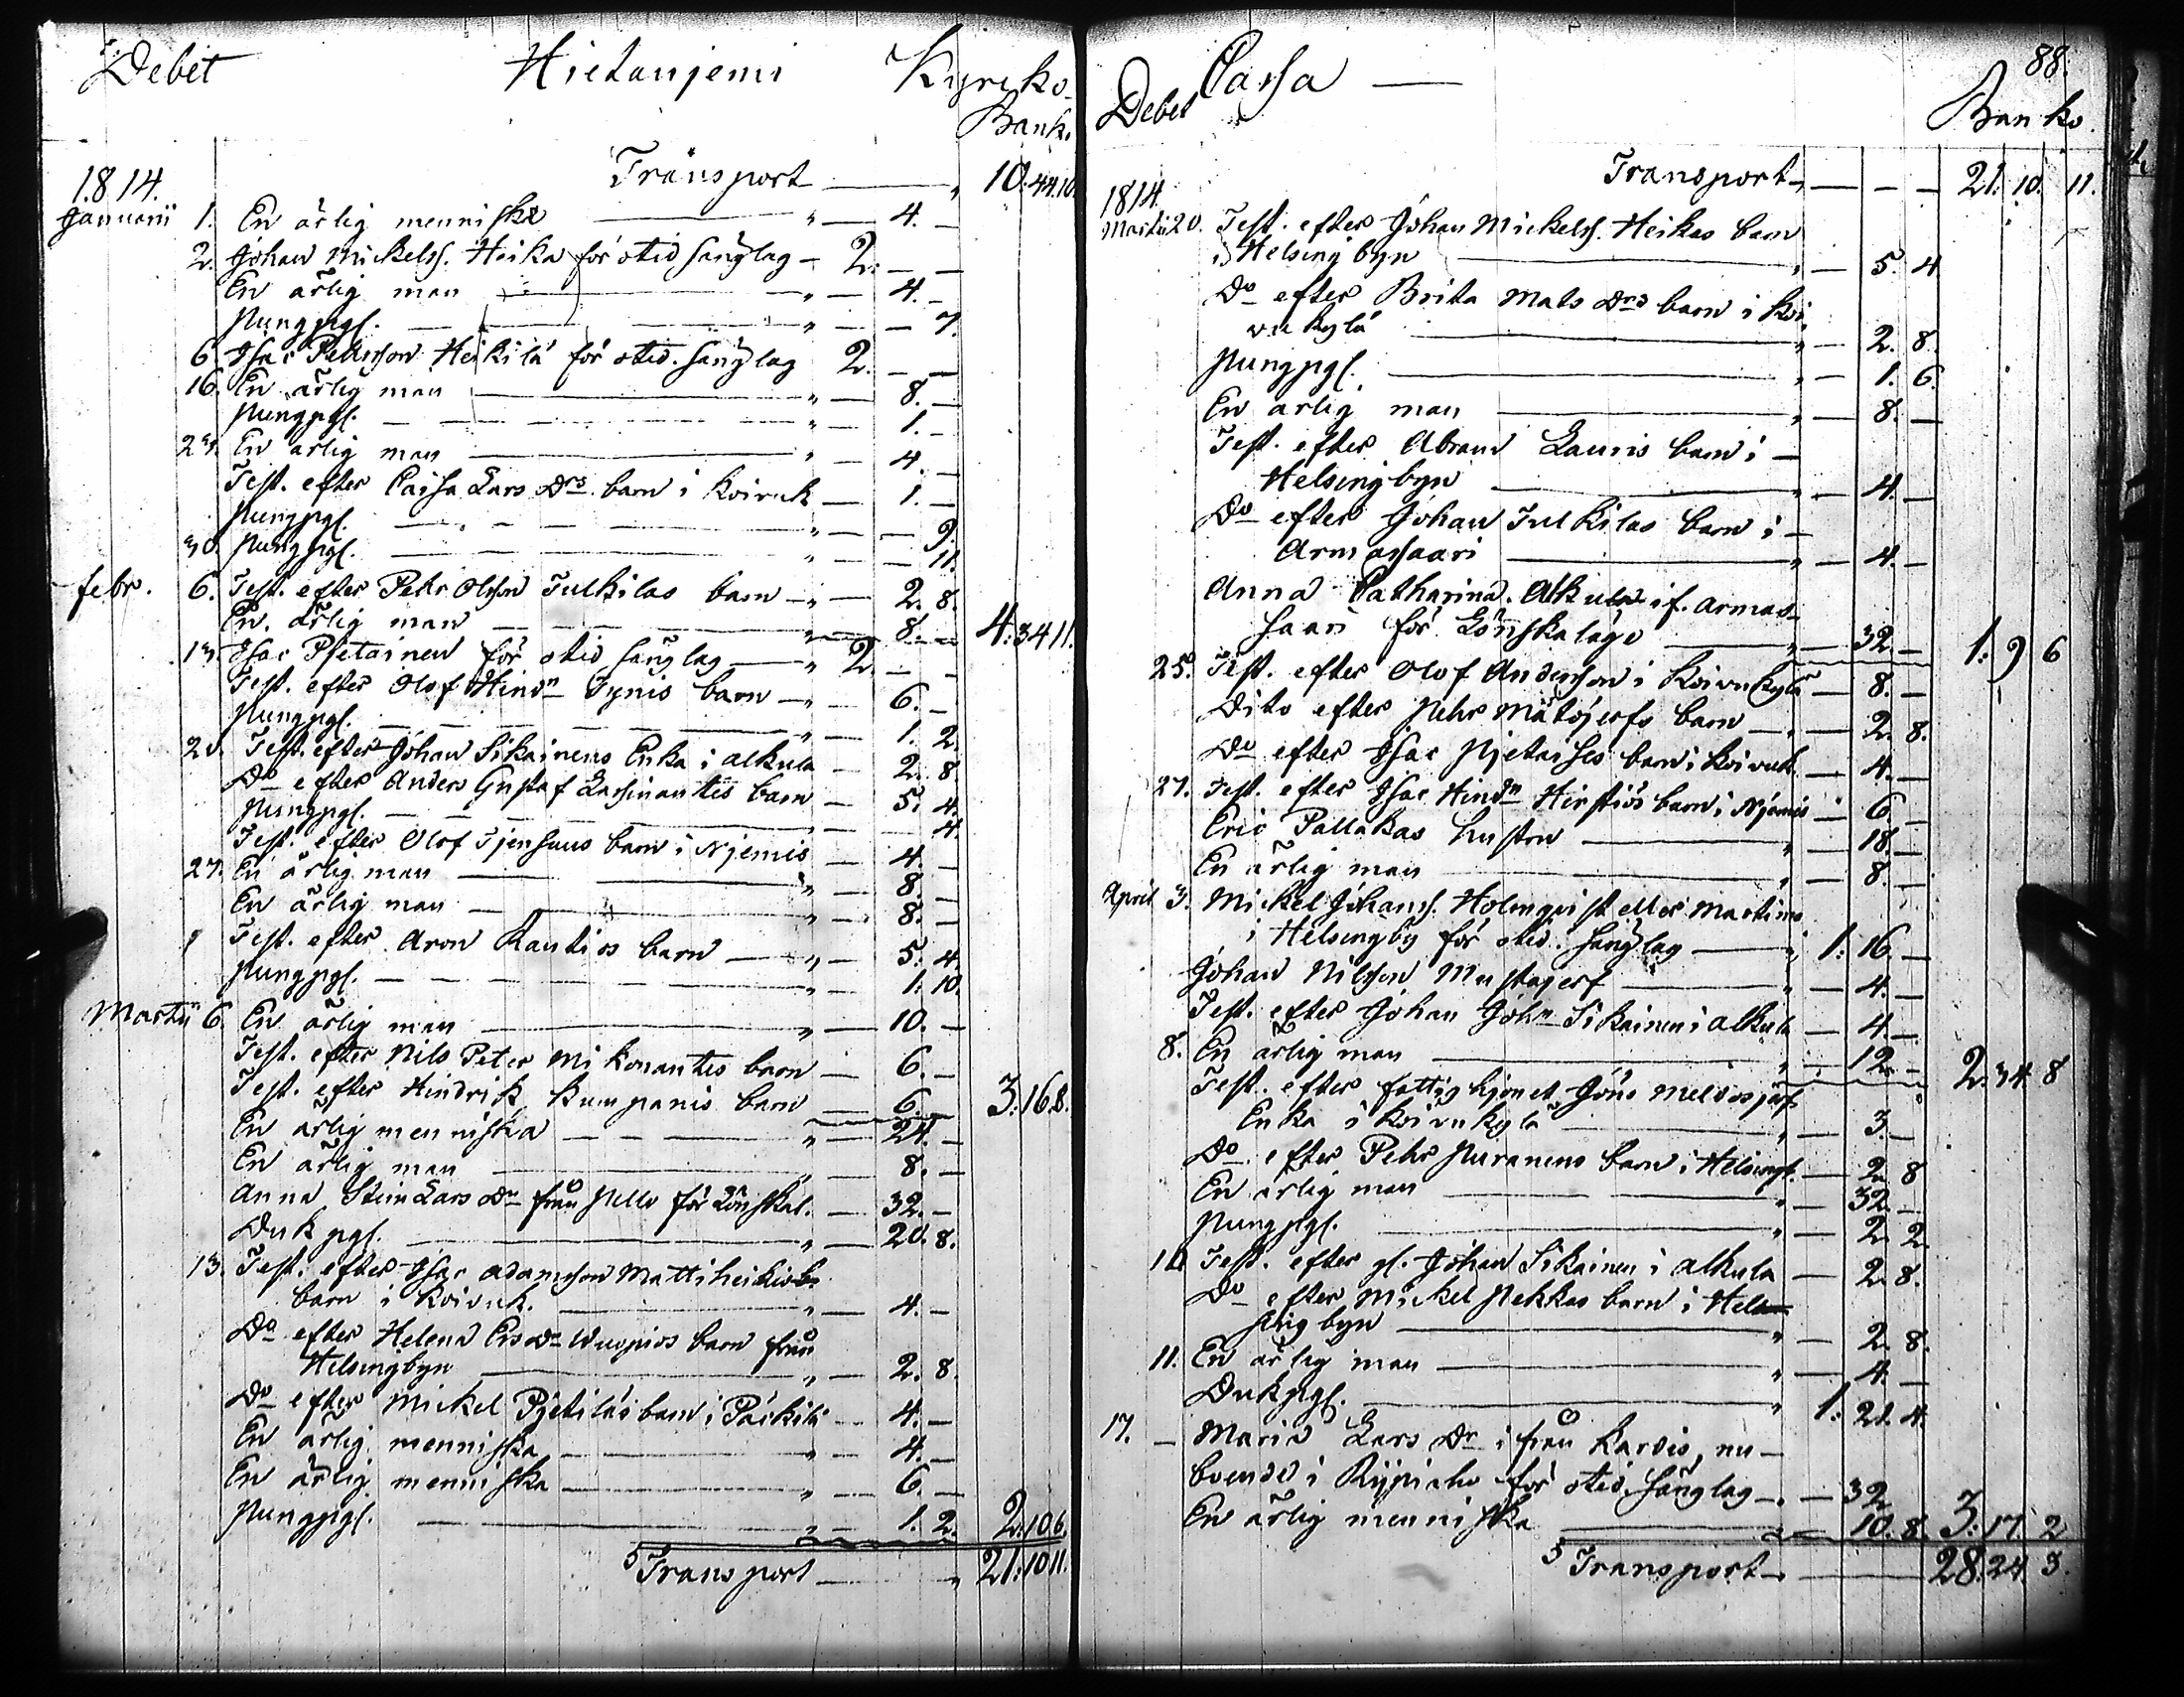 Debet Hietanjemi Kyrcko-
Bank.
Transport — „ 10. 44. 10
1814.
Januarii 1. En ärlig menniska — „ — 4. —
2. Johan Mickelss. Heika för otid. sänglag — 2. — —
En ärlig man — „ — 4. —
Pungpgr. — „ — — 7.
6. Isac Pehrsson Heikilä för otid. sänglag 2. — —
16. En ärlig man — „ — 8. —
Pungpgr. — „ — 1. —
En ärlig man — „ — 4. —
Test. efter Caisa Lars Drs barn i Koivuk — 1. —
Pungpgr. — „ — — 9.
30. Pungpgr. — „ — — 11.
febr. 6. Test. efter Pehr Olsson Tulkilas barn — „ — 2. 8.
En ärlig man — „ — 8. — 4. 34 11.
13. Isac Pietainen för otid sänglag — „ 2. — —
Test. efter Olof Hindn Tynis barn — „ — 6. —
Pungpgr. — „ — 1. 2.
20. Test. efter Johan Sikainens Enka i Alkula — 2. 8.
Do efter Anders Gustaf Lassinantis barn — 5. 4.
Pungpgr. — — 4.
Test. efter Olof barn i Njemis — 4. —
27. En ärlig man — „ — 8. —
En ärlig man — „ — 8. —
Test. efter Aron Rautios barn — „ — 5. 4.
Pungpgr. — „ — 1. 10.
Martii 6. En ärlig man — „ — 10. —
Test. efter Nils Peter Mikonantis barn — 6. —
Test. efter Hindrik Kumpanis barn — 6. — 3. 16. 8.
En ärlig menniska — „ — 24. —
En ärlig man — „ — 8. —
Anna Stina Lars Dr från Pello för Lönskal. — 32. —
Dukpgr. — „ — 20. 8.
13. Test. efter Isac Adamsson Mattiheikis
barn i Koivuk. — „ — 4. —
Do efter Helena Ers Dr Wuopios barn från
Helsingbyn — „ — 2. 8.
Do efter Mickel Pjetiläs barn i Päckilä — 4. —
En ärlig menniska — „ — 4. —
En ärlig menniska — „ — 6. —
Pungpgr. — „ — 1. 2. 2. 10 6.
Transport — „ 21. 10 11.
88.
Debet Cassa —
Banko.
Transport — — — 21. 10. 11.
1814.
Martii 20. Test. efter Johan Mickelss. Heikas barn
i Helsingbyn — „ — 5. 4
Do efter Brita Mats Drs barn i Koi,
vukylä — „ — 2. 8.
Pungpgr. — „ — 1. 6.
En ärlig man — „ — 8. —
Test. efter Abram Lauris barn i —
Helsingbyn — „ — 4. —
Do efter Johan Tulkilas barn i —
Armassaari — „ — 4. —
Anna Catharina Alkula if. Armas-
saari för Lönskaläge — „ — 32. — 1: 9 6
25. Test. efter Olof Andersson i Koivukylä — 8. —
Dito efter Pehr barn — — 2. 8.
Do efter Isac barn i Koivuk. — 4. —
27. Test. efter Isac Hindn Hirstiös barn i Njemis — 6. —
Eric Pallakas hustru — „ — 18. —
En ärlig man — „ — 8. —
April 3. Mickel Johanss. Holmqvist eller Martimo
i Helsingby för otid. sänglag — „ 1: 16 —
Johan Nilsson Mustajerf — „ — 4. —
Test. efter Johan John Sikainen i Alkula — 4. —
8. En ärlig man — „ — 12. — 2. 34. 8
Test. efter fattighjonet Jöns
Enka i Koivukylä — „ — 3. —
Do efter Pehr Puranens barn i Helsingb. — 2. 8
En ärlig man — „ — 32. —
Pungpgr. — „ — 2. 2.
10. Test. efter gl. Johan Sikainen i Alkula — 2. 8.
Do efter Mickel Pekkas barn i Hel-
singbyn — „ — 2. 8.
11. En ärlig man — „ — 4. —
Dukpgr. — „ 1: 21. 4.
17. — Maria Lars Dr ifrån Kardis, nu —
boende i för otid. sänglag — — 32
En ärlig menniska — — 10. 8. 3: 17. 2
Transport — — 28. 24. 3.